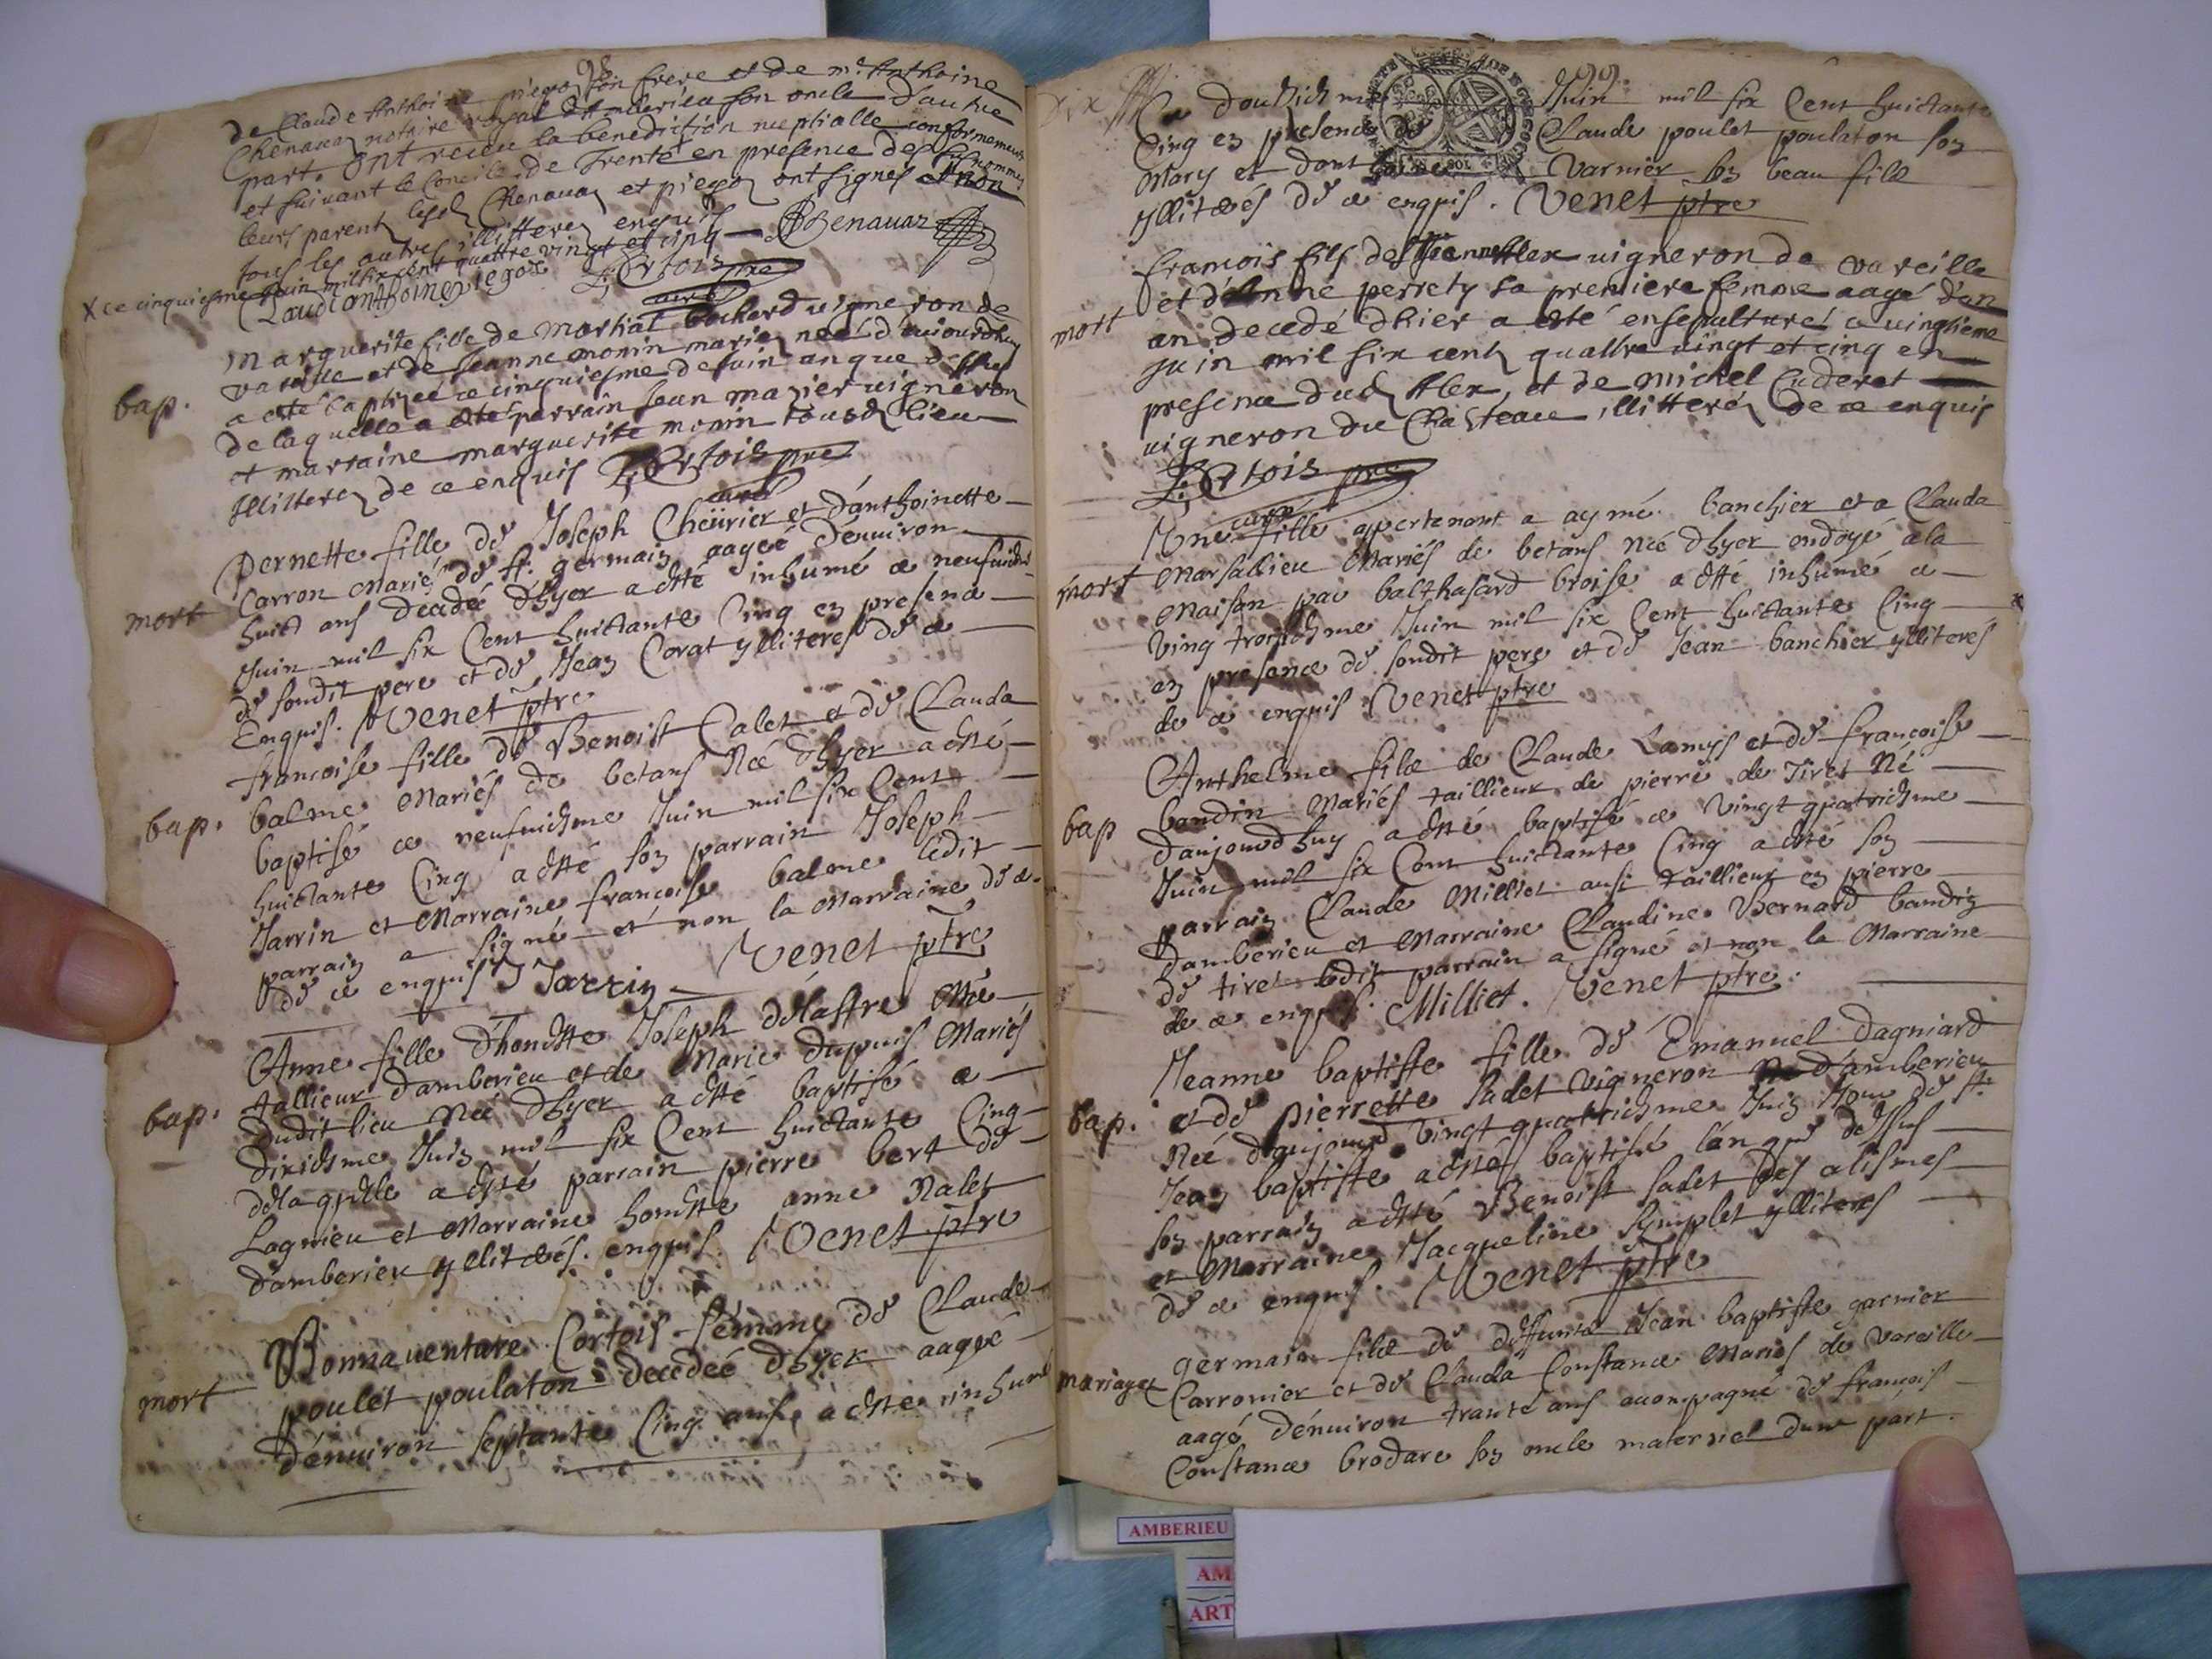 98
de Claude Anthoine piegoz son frere et de mr. Anthoine
Chenavaz notaire royal d'Amberieu son oncle d'autre
part. Ont receu la benediction nuptialle conformement
et suivant le Concile de Trente en presence des susnommez
leurs parentz lesdz Chenavaz et piegoz ont signes et non
tous les autres illitterez enquis Chenavaz
X ce cinquiesme juin mil six cent quattre vingt et cinq
Claud anthoine piegoz
curé
bap.
Marguerite fille de Martial bochard vigneron de
vareille et de Jeanne monin mariez neé d'aujourdhuy
a esté baptizeé ce cinquiesme de juin an que dessus
de laquelle a esté parrain Jean mazier vigneron
et marraine marguerite monin tousdz lieu
Illitterez de ce enquis
curé
mort
Pernette fille de Joseph Cheurier et d'anthoinette
Carron Mariés de st. germain aageé d'environ
huict ans decedeé dhyer a esté inhumé ce neufuiesme
Juin mil six Cent huictante Cinq en presence
de sondit pere et de Jean Corat ylliteres de ce
Enquis. Venet ptre
bap.
francoise fille de Benoist Calet et de Clauda
balme Mariés de betans Née dhyer a esté
baptisé ce neufuiesme Juin mil six Cent
huictante Cinq a esté son parrain Joseph
Jarrin et Marraine francoise balme ledit
parrain a signé et non la Marraine de ce
de ce enquis J Jarrin Venet ptre
bap.
Anne fille d'honeste Joseph delastre Me
tallieur d'amberieu et de Marie dupuis Mariés
dudit lieu Née dhyer a esté baptisé ce
dixiesme Juin mil six Cent huictante Cinq
de laquelle a esté parrain pierre bert de
Lagnieu et Marraine honeste anne Nalet
d'amberieu ylliterés. enquis. Venet ptre
mort
Bonnaventure Cortois femme de Claude
poulet poulaton decedeé dhyer aageé
d'environ septante Cinq ans a esté inhumé
99.
Ce douziesme Juin mil six Cent huictante
Cinq en presence de Claude poulet poulaton son
Mary et dont Varnier son beau fils
yllitérés de ce enquis. Venet ptre
mort
francois fils de vigneron de vareille
et d'Anne perrety sa premiere femme aagé d'un
an decedé dhier a esté ensepulturé ce vingtieme
juin mil six centz quattre vingt et cinq en
presence dudz et de Michel Cuderet
vigneron du Chasteau illitterez de ce enquis
curé
mort
Une fille appertenant a aymé banchier et a Clauda
Marsallieu Mariés de betans née dhyer endoyé a la
Maison par balthasard broise a esté inhumé ce
Ving troisiesme Juin mil six Cent huictante Cinq
en presence de sondit pere et de Jean banchier ylliterés
de ce enquis Venet ptre
bap
Anthelme filz de Claude Lamys et de francoise
baudin Mariés taillieur de pierre de Tiret Né
daujourdhuy a esté baptisé ce Vingt quatriesme
Juin mil six Cent huictante Cinq a esté son
parrain Claude Milliet ausi taillieur en pierre
d'amberieu et Marraine Claudine Bernard baudin
de tiret ledit parrain a signé et non la Marraine
de ce enquis. Milliet. Venet ptre.
bap.
Jeanne baptiste fille de Emanuel Dagniard
et de pierrette Sadet Vigneron d'amberieu
Née daujourd Vingt quatriesme Juin Jour de st.
Jean baptiste a esté baptisé lan que dessus
son parrain a esté Benoist Sadet des alismes
et Marraine Jacqueline Symplet ylliteres
de ce enquis. Venet ptre
mariage
germain filz de deffunte Jean baptiste garnier
Carronier et de Clauda Constance Mariés de Vareille
aagé d'environ trante ans acompagné de francois
Constance brodare son oncle maternel dune part.
AMBERIEU
AM
ART